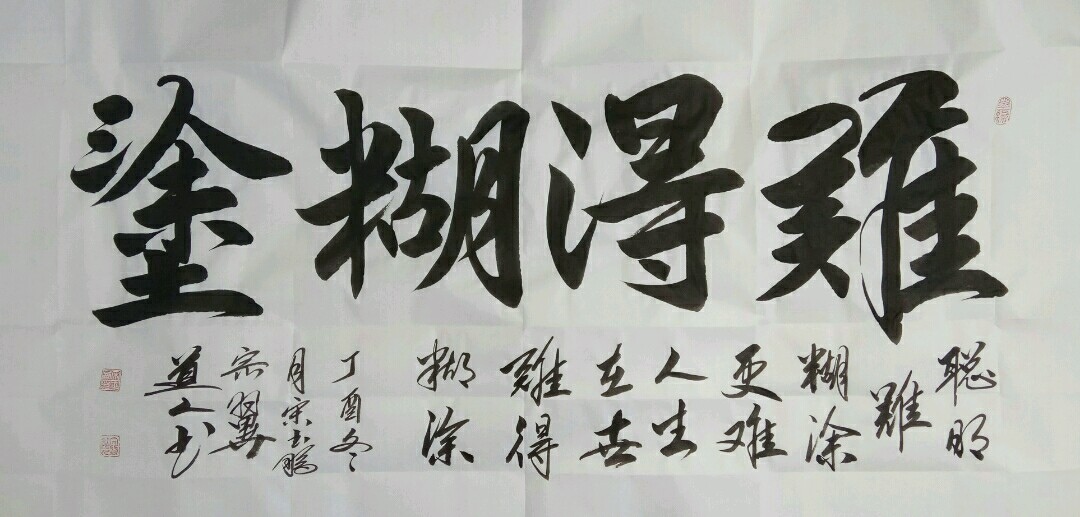 難得糊塗
聪明
難
糊涂
更难
人生
在世
難得
糊涂
丁酉冬
月宋鹏
宗翼
道人书